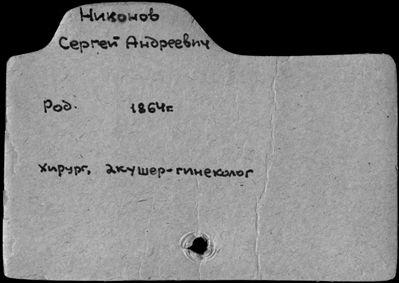 Никонов
Сергей Андреевич
Род. 1864г
хирург, акушер-гинеколог